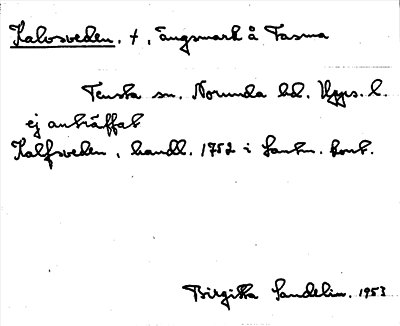 Kalvsveden, †, ängsmark å Fasma
Tensta sn. Norunda hd. Upps. l.
ej anträffat
Kalfsveden, handl. 1752 i Lantm. kont.
Birgitta Sandelin. 1953